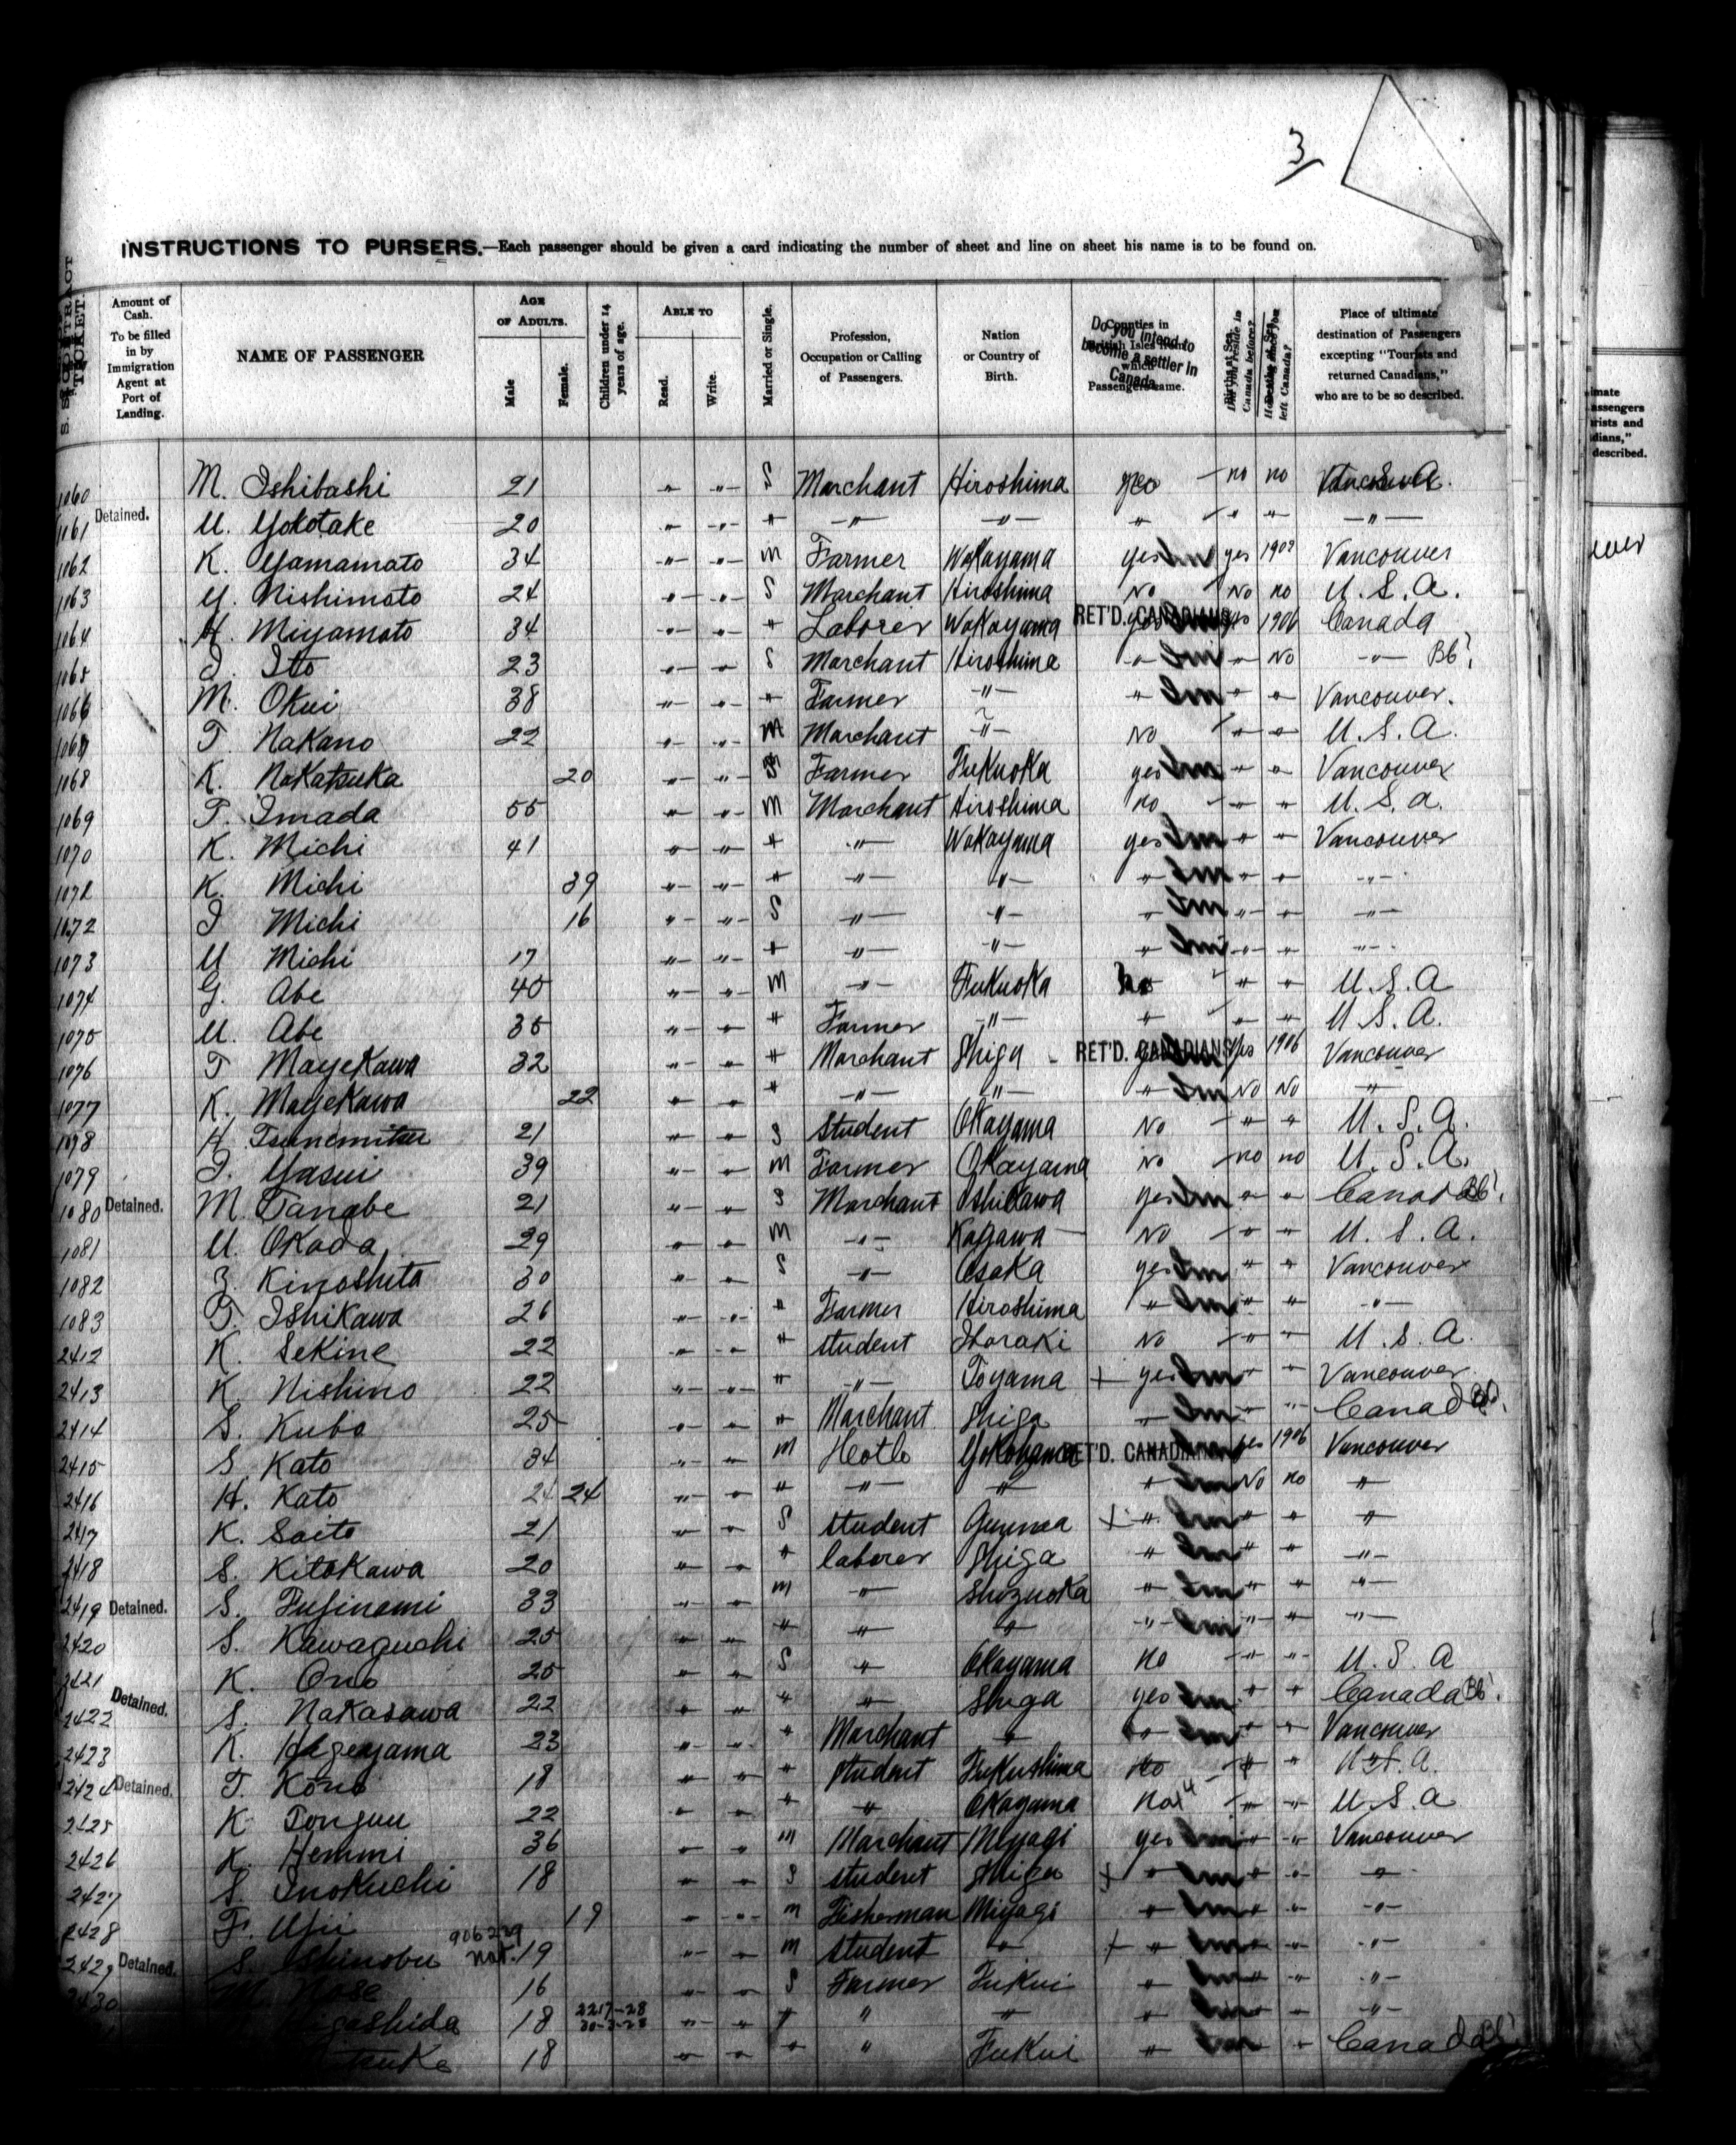 3
INSTRUCTIONS TO PURSERS.—Each passenger should be given a card indicating the number of sheet and line on sheet his name is to be found on.
Amount of Cash. To be filled in by Immigration Agent at Port of Landing.
NAME OF PASSENGER
AGE OF ADULTS. Male Female.
Children under 14 years of age.
ABLE TO Read. Write.
Married or Single.
Profession, Occupation or Calling of Passengers.
Nation or Country of Birth.
Do you intend to become a settler in Canada
Place of ultimate destination of Passengers excepting "Tourists and returned Canadians," who are to be so described.
1060 M. Ishibashi 21 " " S Marchant Hiroshima yes no no
1061 Detained. U. Yokotake 20 " " " " " " " " "
1062 K. Yamamato 34 " " m Farmer Wakayama yes Im yes 1907 Vancouver
1163 Y. Nishimoto 24 " " S Marchant Hiroshima No No no U.S.A.
1064 H. Miyamoto 34 " " " Laborer Wakayama RET'D. CANADIANS yes 1906 Canada
1065 I. Ito 23 " " S Marchant Hiroshima " Im " No " Bb'
1066 M. Okui 38 " " " Farmer " " Im " " Vancouver.
1067 T. Nakano 22 " " M Marchant " No " " U.S.A.
1068 K. Nakatsuka 20 " " Farmer Fukuoka yes Im " " Vancouver
1069 T. Imada 55 " " M Marchant Hiroshima no " " U.S.A.
1070 K. Michi 41 " " " " Wakayama yes Im " " Vancouver
1072 K. Michi 39 " " " " " " Im " " "
1072 I Michi 16 " " S " " " Im " " "
1073 U Michi 17 " " " " " " Im " " "
1074 G. Abe 40 " " M " Fukuoka no " " U.S.A
1075 U. Abe 35 " " " Farmer " " " " U.S.A.
1076 T Mayekawa 32 " " " Marchant Shiga RET'D. CANADIANS yes 1906 Vancouver
1077 K. Mayekawa 22 " " " " " " Im No No "
1078 H. Tsunemitsu 21 " " S Student Okayama No " " U.S.A.
1079 I. Yasui 39 " " M Farmer Okayama No no no U.S.A.
1080 Detained. M. Tanabe 21 " " S Marchant Ishikawa yes Im " " Canada Bb'.
1081 U. Okada 29 " " M " Kagawa No " " U.S.A.
1082 Z. Kinoshita 30 " " S " Osaka yes Im " " Vancouver
1083 T. Ishikawa 26 " " " Farmer Hiroshima " Im " " "
2412 K. Sekine 22 " " " student Ibaraki No " " U.S.A.
2413 K. Nishino 22 " " " " Toyama + yes Im " " Vancouver
2414 S. Kubo 25 " " " Marchant Shiga " Im " " Canada
2415 S. Kato 34 " " m Hotle Yokohama RET'D. CANADIANS yes 1906 Vancouver
2416 H. Kato 24 24 " " " " " " Im No no "
2417 K. Saito 21 " " S student Gunma + " Im " " "
2418 S. Kitakawa 20 " " " laborer Shiga " Im " " "
2419 Detained. S. Fujinami 33 " " m " Shizuoka " Im " " "
2420 S. Kawaguchi 25 " " " " " " Im " " "
2421 K. Ono 25 " " S " Okayama No " " U.S.A
2422 Detained. S. Nakasawa 22 " " " " Shiga yes Im " " Canada Bb'.
2423 K. Hegeyama 23 " " " Marchant " " Im " " Vancouver
2424 Detained. T. Kono 18 " " " student Fukushima No " " U.S.A.
2425 K. 22 " " " " Okayama No " " U.S.A
2426 K. Hemmi 36 " " m Marchant Miyagi yes Im " " Vancouver
2427 S. Inokuchi 18 " " S student Shiga + " Im " " "
2428 F. Ujii 19 " " m Fisherman Miyagi " Im " " "
2429 Detained. S. Shinobu 906229 Nat. 19 " " m student " + " Im " " "
2430 M. Nose 16 " " S Farmer Fukui " Im " " "
18 2217-28 30-3-28 " " " " " " Im " " "
18 " " " " Fukui " Im " Canada Bb'